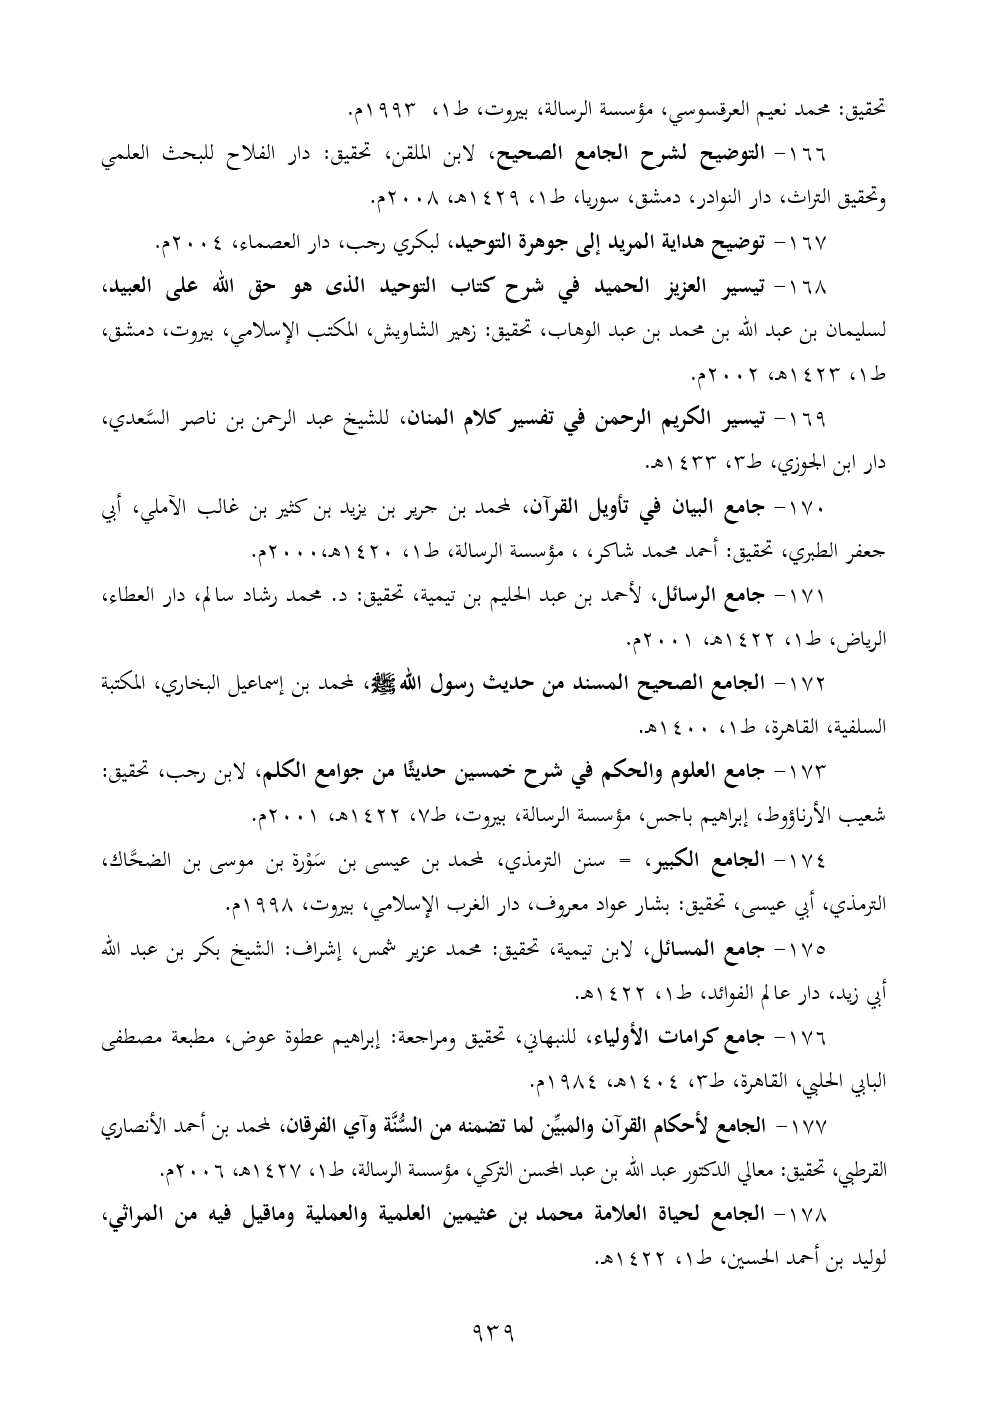 تحقيق: محمد نعيم العرقسوسي، مؤسسة الرسالة، بيروت، ط١، ١٩٩٣م.
١٦٦- التوضيح لشرح الجامع الصحيح، لابن الملقن، تحقيق: دار الفلاح للبحث العلمي
وتحقيق التراث، دار النوادر، دمشق، سوريا، ط١، ١٤٢٩هـ، ٢٠٠٨م.
١٦٧- توضيح هداية المريد إلى جوهرة التوحيد، لبكري رجب، دار العصماء، ٢٠٠٤م.
١٦٨- تيسير العزيز الحميد في شرح كتاب التوحيد الذى هو حق الله على العبيد،
لسليمان بن عبد الله بن محمد بن عبد الوهاب، تحقيق: زهير الشاويش، المكتب الإسلامي، بيروت، دمشق،
ط١، ١٤٢٣هـ، ٢٠٠٢م.
١٦٩- تيسير الكريم الرحمن في تفسير كلام المنان، للشيخ عبد الرحمن بن ناصر السَّعدي،
دار ابن الجوزي، ط٣، ١٤٣٣هـ.
١٧٠- جامع البيان في تأويل القرآن، لمحمد بن جرير بن يزيد بن كثير بن غالب الآملي، أبي
جعفر الطبري، تحقيق: أحمد محمد شاكر، ، مؤسسة الرسالة، ط١، ١٤٢٠هـ،٢٠٠٠م.
١٧١- جامع الرسائل، لأحمد بن عبد الحليم بن تيمية، تحقيق: د. محمد رشاد سالم، دار العطاء،
الرياض، ط١، ١٤٢٢هـ، ٢٠٠١م.
١٧٢- الجامع الصحيح المسند من حديث رسول الله ﷺ، لمحمد بن إسماعيل البخاري، المكتبة
السلفية، القاهرة، ط١، ١٤٠٠هـ.
١٧٣- جامع العلوم والحكم في شرح خمسين حديثًا من جوامع الكلم، لابن رجب، تحقيق:
شعيب الأرناؤوط، إبراهيم باجس، مؤسسة الرسالة، بيروت، ط٧، ١٤٢٢هـ، ٢٠٠١م.
١٧٤- الجامع الكبير، = سنن الترمذي، لمحمد بن عيسى بن سَوْرة بن موسى بن الضحَّاك،
الترمذي، أبي عيسى، تحقيق: بشار عواد معروف، دار الغرب الإسلامي، بيروت، ١٩٩٨م.
١٧٥- جامع المسائل، لابن تيمية، تحقيق: محمد عزير شمس، إشراف: الشيخ بكر بن عبد الله
أبي زيد، دار عالم الفوائد، ط١، ١٤٢٢هـ.
١٧٦- جامع كرامات الأولياء، للنبهاني، تحقيق ومراجعة: إبراهيم عطوة عوض، مطبعة مصطفى
البابي الحلبي، القاهرة، ط٣، ١٤٠٤هـ، ١٩٨٤م.
١٧٧- الجامع لأحكام القرآن والمبيِّن لما تضمنه من السُّنَّة وآي الفرقان، لمحمد بن أحمد الأنصاري
القرطبي، تحقيق: معالي الدكتور عبد الله بن عبد المحسن التركي، مؤسسة الرسالة، ط١، ١٤٢٧هـ، ٢٠٠٦م.
١٧٨- الجامع لحياة العلامة محمد بن عثيمين العلمية والعملية وماقيل فيه من المراثي،
لوليد بن أحمد الحسين، ط١، ١٤٢٢هـ.
٩٣٩